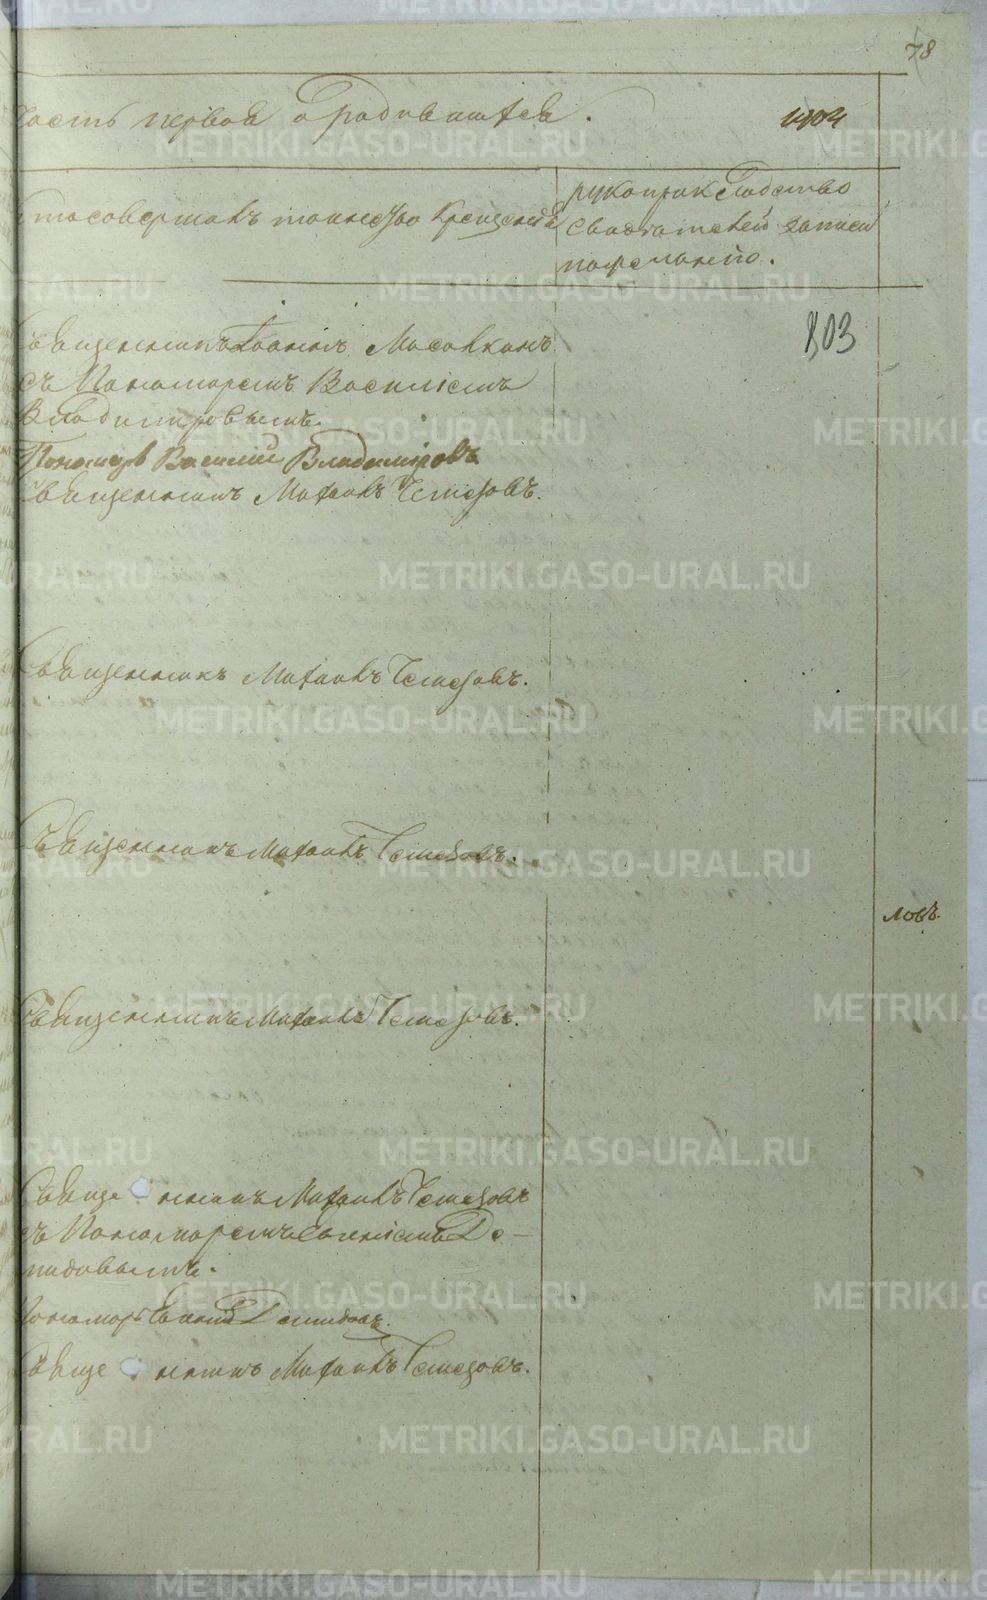 78
Часть первая о родившихся.
1104
Кто совершалъ таинство крещенія
рукоприкладство
свидѣтелей записи
по желанію.
803
Священникъ Іоаннъ
съ Пономаремъ Василіемъ
Владимировымъ.
Пономарь Василий Владимировъ
Священникъ Михаилъ
Священникъ Михаилъ
Священникъ Михаилъ
ловъ
Священникъ Михаилъ
Священникъ Михаилъ
съ Пономаремъ Евгеніемъ Де-
мидовымъ.
Пономарь Евгений Демидовъ.
Священникъ Михаилъ
METRIKI.GASO-URAL.RU